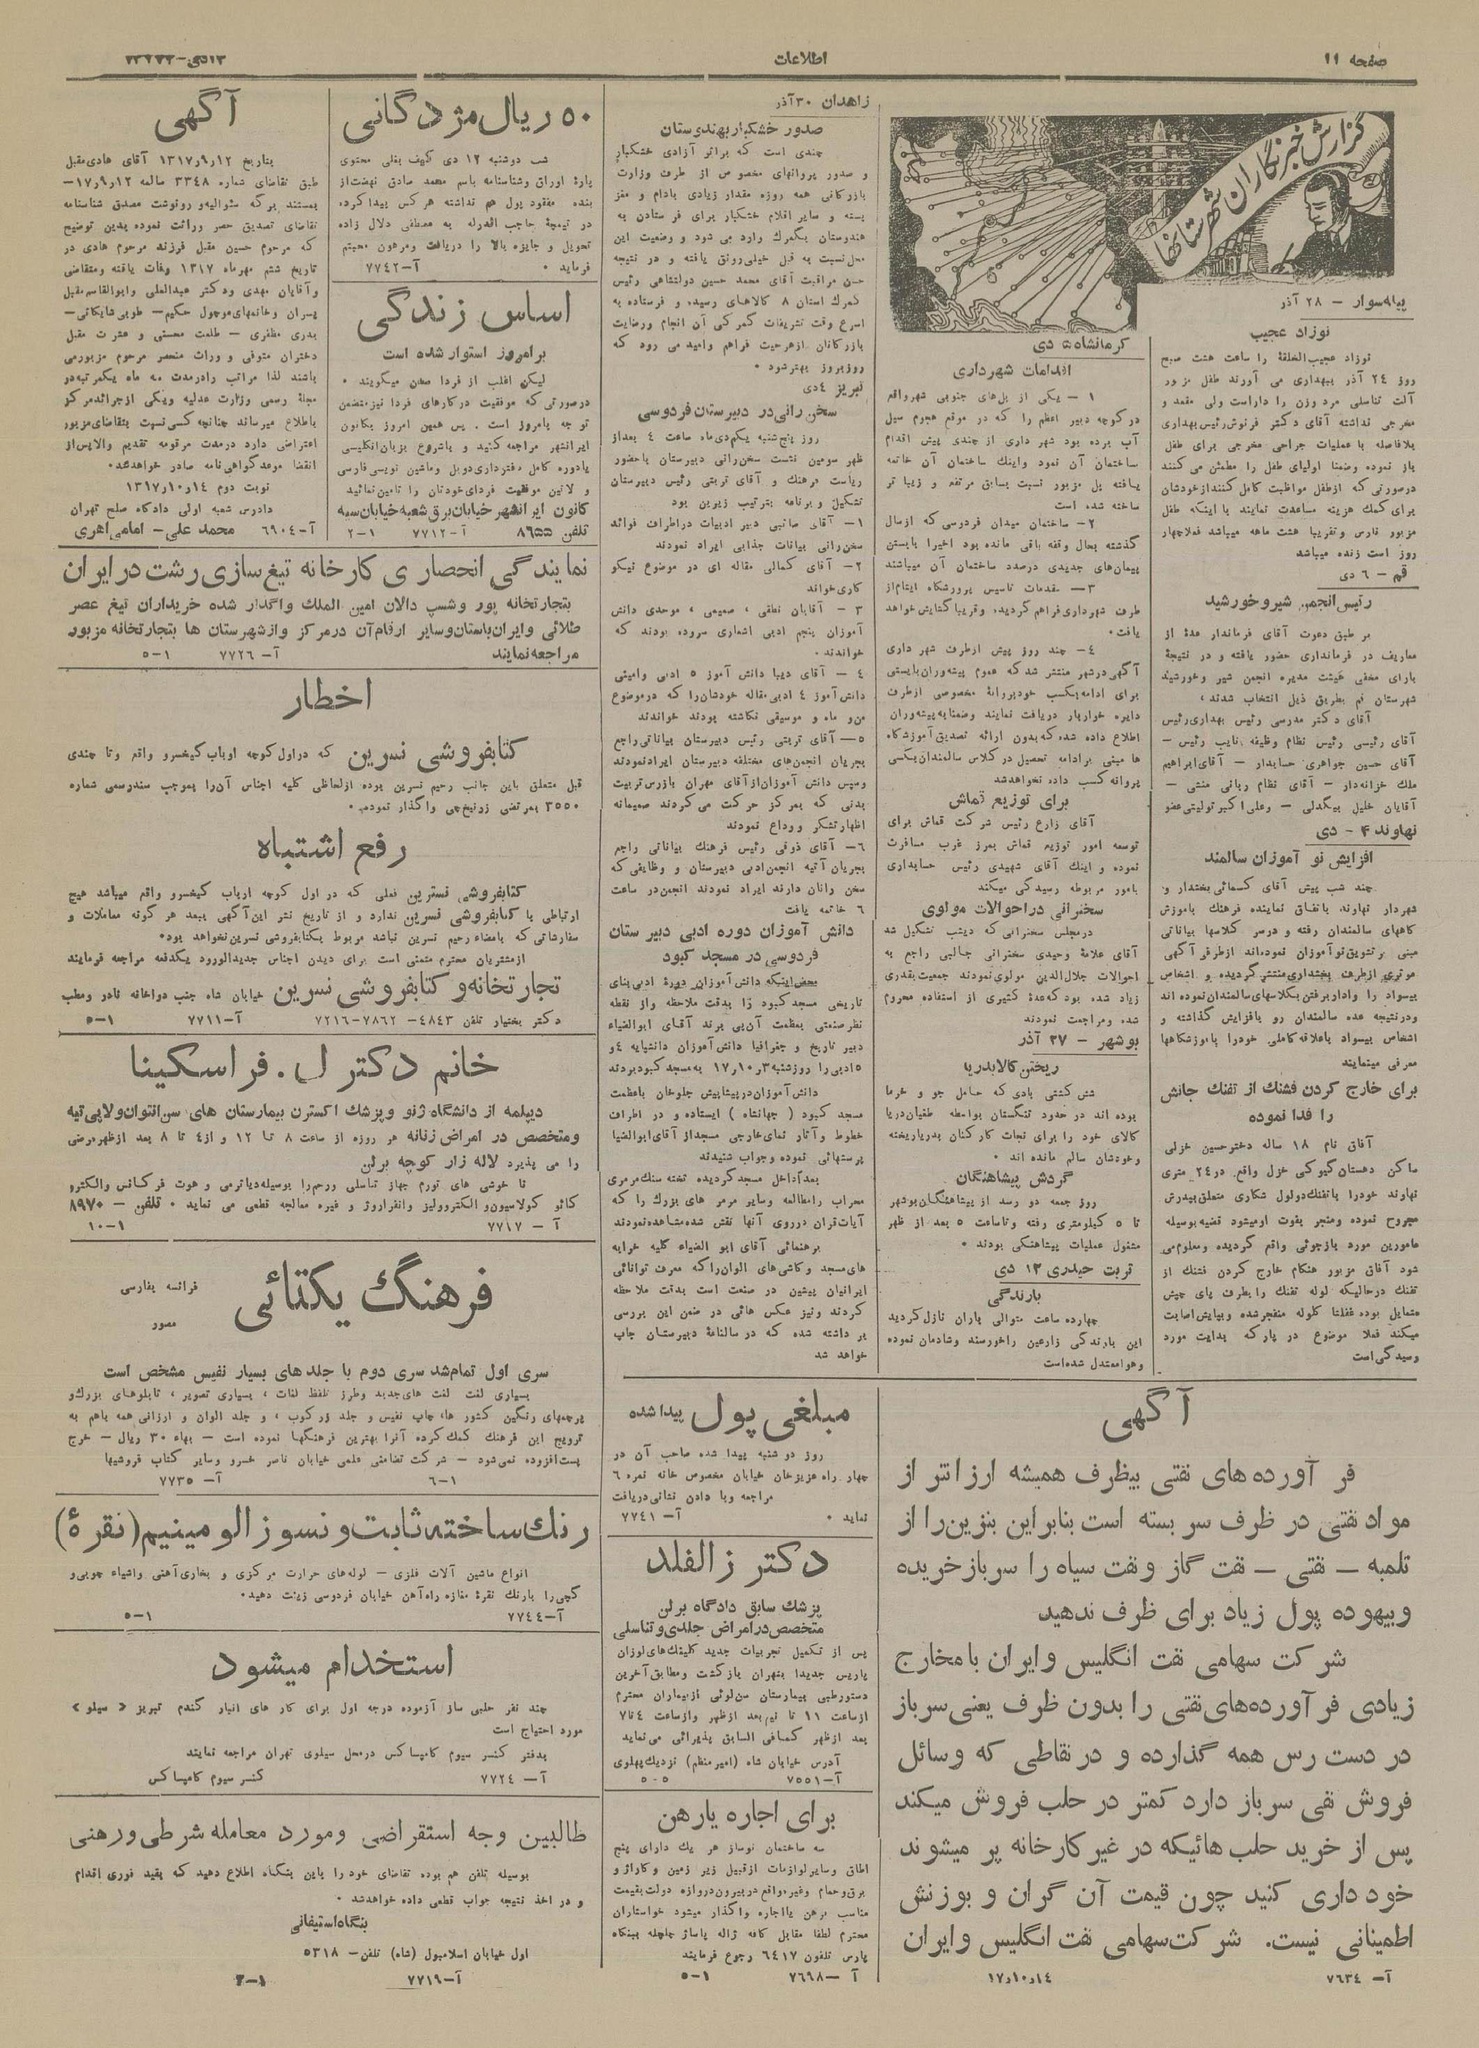 صفحه ۱۱
اطلاعات
گزارش خبرنگاران شهرستانها
پیله سوار — ۲۸ آذر
نوزاد عجیب
نوزاد عجیب‌الخلقهٔ را ساعت هشت صبح
روز ۲۴ آذر ببهداری می آورند طفل مزبور
آلت تناسلی مرد و زن را داراست ولی مقعد و
مخرجی نداشته آقای دکتر فرنوش رئیس بهداری
بلافاصله با عملیات جراحی مخرجی برای طفل
باز نموده و ضمنا اولیای طفل را مطمئن می کنند
درصورتی که از طفل مواظبت کامل کنند از خودشان
برای کمک هزینه مساعدت نمایند با اینکه طفل
مزبور نارس و تقریبا هشت ماهه میباشد فعلا چهار
روز است زنده میباشد
قم — ۶ دی
رئیس انجمن شیر و خورشید
بر طبق دعوت آقای فرماندار عدهٔ از
معاریف در فرمانداری حضور یافته و در نتیجهٔ
بارای مخفی هیئت مدیره انجمن شیر و خورشید
شهرستان قم بطریق ذیل انتخاب شدند؛
آقای دکتر مدرسی رئیس بهداری رئیس
آقای رئیسی رئیس نظام وظیفه نایب رئیس —
آقای حسین جواهری حسابدار — آقای ابراهیم
ملک خزانه‌دار — آقای نظام ربانی منشی —
آقایان خلیل بیگدلی — و علی اکبر تولیتی عضو
نهاوند ۴ - دی
افزایش نو آموزان سالمند
چند شب پیش آقای کسمائی بخشدار و
شهردار نهاوند باتفاق نماینده فرهنگ باموزش
گاههای سالمندان رفته و در سر کلاسها بیاناتی
مبنی بر تشویق نوآموزان نموده‌اند از طرفی آگهی
موثری از طرف بخشداری منتشر گردیده و اشخاص
بیسواد را وادار برفتن بکلاسهای سالمندان نموده اند
و در نتیجه عده سالمندان رو بافزایش گذاشته و
اشخاص بیسواد با علاقه کاملی خود را باموزشگاهها
معرفی مینمایند
برای خارج کردن فشنگ از تفنگ جانش
را فدا نموده
آفاق نام ۱۸ ساله دختر حسین خزلی
ساکن دهستان گیوکی خزل واقع در ۲۴ متری
نهاوند خود را با تفنگ دولول شکاری متعلق بپدرش
مجروح نموده و منجر بفوت او میشود قضیه بوسیله
مامورین مورد بازجوئی واقع گردیده و معلوم می
شود آفاق مزبور هنگام خارج کردن فشنگ از
تفنگ درحالیکه لوله تفنگ را بطرف پای خویش
متمایل بوده غفلتا گلوله منفجر شده و بپایش اصابت
میکند فعلا موضوع در پارکه بدایت مورد
رسیدگی است
کرمانشاه ۵ دی
اقدامات شهرداری
۱ — یکی از پل‌های جنوبی شهر واقع
در کوچه دبیر اعظم را که در موقع هجوم سیل
آب برده بود شهر داری از چندی پیش اقدام
ساختمان آن نمود و اینک ساختمان آن خاتمه
یافته پل مزبور نسبت بسابق مرتفع و زیبا تر
ساخته شده است
۲— ساختمان میدان فردوسی که از سال
گذشته بحال وقفه باقی مانده بود اخیرا با بستن
پیمان‌های جدیدی درصدد ساختمان آن میباشند
۳— مقدمات تاسیس پرورشگاه ایتام از
طرف شهرداری فراهم گردیده و قریبا گشایش خواهد
یافت.
۴— چند روز پیش از طرف شهر داری
آگهی در شهر منتشر شد که عموم پیشه وران بایستی
برای ادامه بکسب خود پروانهٔ مخصوصی از طرف
دایره خواربار دریافت نمایند و ضمنا به پیشه وران
اطلاع داده شد که بدون ارائه تصدیق آموزشگاه
ها مبنی بر ادامه تحصیل در کلاس سالمندان بکسی
پروانه کسب داده نخواهد شد
برای توزیع قماش
آقای زارع رئیس شرکت قماش برای
توسعه امور توزیع قماش بمرز غرب مسافرت
نموده و اینک آقای شهیدی رئیس حسابداری
بامور مربوطه رسیدگی میکند
سخنرانی در احوالات مولوی
درمجلس سخنرانی که دیشب تشکیل شد
آقای علامهٔ وحیدی سخنرانی جالبی راجع به
احوالات جلال‌الدین مولوی نمودند جمعیت بقدری
زیاد شده بود که عدهٔ کثیری از استفاده محروم
شده و مراجعت نمودند
بوشهر — ۲۷ آذر
ریختن کالا بدریا
شش کشتی بادی که حامل جو و خرما
بوده اند در حدود تنگستان بواسطه طغیان دریا
کالای خود را برای نجات کارکنان بدریا ریخته
و خودشان سالم مانده اند.
گردش پیشاهنگان
روز جمعه دو رسد از پیشاهنگان بوشهر
تا ۵ کیلومتری رفته و تا ساعت ۵ بعد از ظهر
مشغول عملیات پیشاهنگی بودند.
تربت حیدری ۱۲ دی
بارندگی
چهارده ساعت متوالی باران نازل گردید
این بارندگی زارعین را خورسند و شادمان نموده
و هوا معتدل شده است
زاهدان ۳۰ آذر
صدور خشکبار بهندوستان
چندی است که براثر آزادی خشکبار
و صدور پروانهای مخصوص از طرف وزارت
بازرگانی همه روزه مقدار زیادی بادام و مغز
پسته و سایر اقلام خشکبار برای فرستادن به
هندوستان بگمرک وارد می شود و وضعیت این
محل نسبت به قبل خیلی رونق یافته و در نتیجه
حسن مراقبت آقای محمد حسین دولتشاهی رئیس
گمرک استان ۸ کالاهای رسیده و فرستاده به
اسرع وقت تشریفات گمرکی آن انجام و رضایت
بازرگانان از هر حیث فراهم و امید می رود که
روز بروز بهتر شود.
تبریز ۴ دی
سخن رانی در دبیرستان فردوسی
روز پنج شنبه یکم دی ماه ساعت ۴ بعد از
ظهر سومین نشست سخن رانی دبیرستان با حضور
ریاست فرهنگ و آقای تربتی رئیس دبیرستان
تشکیل و برنامه بترتیب زیرین بود
۱— آقای صائبی دبیر ادبیات در اطراف فوائد
سخن رانی بیانات جذابی ایراد نمودند
۲— آقای کمالی مقاله ای در موضوع نیکو
کاری خواند
۳ — آقایان نطقی، صمیمی، موحدی دانش
آموزان پنجم ادبی اشعاری سروده بودند که
خواندند.
۴ — آقای دیبا دانش آموز ۵ ادبی و امینی
دانش آموز ۴ ادبی مقاله خودشان را که در موضوع
من و ماه و موسیقی نگاشته بودند خواندند
۵— آقای تربتی رئیس دبیرستان بیاناتی راجع
بجریان انجمن‌های مختلفه دبیرستان ایراد نمودند
و سپس دانش آموزان از آقای مهران بازرس تربیت
بدنی که بمرکز حرکت می کردند صمیمانه
اظهار تشکر و وداع نمودند
۶— آقای ذوقی رئیس فرهنگ بیاناتی راجع
بجریان آتیه انجمن ادبی دبیرستان و وظایفی که
سخن رانان دارند ایراد نمودند انجمن در ساعت
۶ خاتمه یافت
دانش آموزان دوره ادبی دبیرستان
فردوسی در مسجد کبود
محض اینکه دانش آموزان دورهٔ ادبی بنای
تاریخی مسجد کبود را بدقت ملاحظه و از نقطه
نظر صنعتی بعظمت آن پی برند آقای ابوالضیاء
دبیر تاریخ و جغرافیا دانش آموزان دانشپایه ۴ و
۵ ادبی را روز شنبه ۱۷٫۱۰٫۳ به مسجد کبود بردند
دانش آموزان در پیشاپیش جلوخان با عظمت
مسجد کبود (جهانشاه) ایستاده و در اطراف
خطوط و آثار نمای خارجی مسجد از آقای ابوالضیا
پرسشهائی نموده و جواب شنیدند
بعد داخل مسجد گردیده تخته سنگ مرمری
محراب را مطالعه و سایر مرمر های بزرگ را که
آیات قران در روی آنها نقش شده مشاهده نمودند
برهنمائی آقای ابو الضیاء کلیه خرابه
های مسجد و کاشی های الوان را که معرف توانائی
ایرانیان پیشین در صنعت است بدقت ملاحظه
کردند و نیز عکس هائی در ضمن این بررسی
برداشته شده که در سالنامهٔ دبیرستان چاپ
خواهد شد
۵۰ ریال مژدگانی
شب دوشنبه ۱۲ دی کیف بغلی محتوی
پارهٔ اوراق و شناسنامه باسم محمد صادق نهضت از
بنده مفقود پول هم نداشته هر کس پیدا کرده
در تیمچهٔ حاجب الدوله به مصطفی دلال زاده
تحویل و جایزه بالا را دریافت و مرهون محبتم
فرماید.
آ—۷۷۴۲
اساس زندگی
بر امروز استوار شده است
لیکن اغلب از فردا سخن میگویند.
درصورتی که موفقیت درکارهای فردا نیز متضمن
توجه بامروز است. پس همین امروز بکانون
ایرانشهر مراجعه کنید و باشروع بزبان انگلیسی
یا دوره کامل دفترداری دوبل و ماشین نویسی فارسی
و لاتین موفقیت فردای خودتان را تامین نمائید
کانون ایرانشهر خیابان برق شعبه خیابان سپه
تلفن ۸۶۵۵
آ—۷۷۱۲
۲—۱
آگهی
بتاریخ ۱۳۱۷٫۹٫۱۲ آقای هادی مقبل
طبق تقاضای شماره ۳۳۴۸ سالمه ۱۷٫۹٫۱۲—
بمستند برگه سئوالیه و رونوشت مصدق شناسنامه
تقاضای تصدیق حصر وراثت نموده بدین توضیح
که مرحوم حسین مقبل فرزند مرحوم هادی در
تاریخ ششم مهرماه ۱۳۱۷ وفات یافته و متقاضی
و آقایان مهدی و دکتر عبدالعلی و ابوالقاسم مقبل
پسران و خانمهای موچول حکیم— طوبی شایگانی—
بدری مظفری — طلعت محسنی و عشرت مقبل
دختران متوفی و وراث منحصر مرحوم مزبور می
باشند لذا مراتب را در مدت سه ماه یکمرتبه در
مجلهٔ رسمی وزارت عدلیه و یکی از جرائد مرکز
باطلاع میرساند چنانچه کسی نسبت بتقاضای مزبور
اعتراضی دارد درمدت مرقومه تقدیم والا پس از
انقضا موعد گواهی نامه صادر خواهد شد.
نوبت دوم ۱۳۱۷٫۱۰٫۱۴
دادرس شعبه اولی دادگاه صلح تهران
آ—۶۹۰۴
محمد علی— امامی اهری
نمایندگی انحصاری کارخانه تیغ سازی رشت در ایران
بتجارتخانه پور و شسب دالان امین الملک واگذار شده خریداران تیغ عصر
طلائی و ایران باستان و سایر ارقام آن در مرکز و از شهرستان ها بتجارتخانه مزبور
مراجعه نمایند
آ— ۷۷۲۶
۵—۱
اخطار
کتابفروشی نسرین که در اول کوچه ارباب کیخسرو واقع و تا چندی
قبل متعلق باین جانب رحیم نسرین بوده از لحاظی کلیه اجناس آن را بموجب سند رسمی شماره
۳۵۵۰ بمرتضی زرنیخ چی واگذار نموده.
رفع اشتباه
کتابفروشی نسترین فعلی که در اول کوچه ارباب کیخسرو واقع میباشد هیچ
ارتباطی با کتابفروشی نسرین ندارد و از تاریخ نشر این آگهی ببعد هر گونه معاملات و
سفارشاتی که بامضاء رحیم نسرین نباشد مربوط بکتابفروشی نسرین نخواهد بود.
از مشتریان محترم متمنی است برای دیدن اجناس جدیدالورود یکدفعه مراجعه فرمایند
تجارتخانه و کتابفروشی نسرین خیابان شاه جنب دواخانه نادر و مطب
دکتر بختیار تلفن ۴۸۴۳— ۷۸۶۲—۷۲۱۶
آ—۷۷۱۱
۵—۱
خانم دکتر ل. فراسکینا
دیپلمه از دانشگاه ژنو و پزشک اکسترن بیمارستان های سن انتوان و لاپی تیه
و متخصص در امراض زنانه هر روزه از ساعت ۸ تا ۱۲ و از ۴ تا ۸ بعد از ظهر مرضی
را می پذیرد لاله زار کوچه برلن
نا خوشی های تورم جهاز تناسلی و رحم را بوسیله دیاترمی و هوت فرکانس و الکترو
کاتو کولاسیون و الکترولیز و انفراروژ و غیره معالجه قطعی می نماید. تلفن — ۸۹۷۰
آ — ۷۷۱۷
۱۰—۱
فرهنگ یکتائی
فرانسه بفارسی
مصور
سری اول تمام شد سری دوم با جلد های بسیار نفیس مشخص است
بسیاری لغت لغت های جدید و طرز تلفظ لغات، بسیاری تصویر، تابلوهای بزرگ و
پرچمهای رنگین کشور ها، چاپ نفیس و جلد زرکوب، و جلد الوان و ارزانی همه باهم به
ترویج این فرهنگ کمک کرده آنرا بهترین فرهنگها نموده است — بهاء ۳۰ ریال — خرج
پست افزوده نمی شود — شرکت تضامنی علمی خیابان ناصر خسرو و سایر کتاب فروشیها
آ— ۷۷۳۵
۶—۱
رنگ ساخته ثابت و نسوز الومینیم (نقرهٔ)
انواع ماشین آلات فلزی — لوله‌های حرارت مرکزی و بخاری آهنی و اشیاء چوبی و
گچی را با رنگ نقرهٔ مغازه راه آهن خیابان فردوسی زینت دهید.
آ—۷۷۴۴
۵—۱
استخدام میشود
چند نفر حلبی ساز آزموده درجه اول برای کار های انبار گندم تبریز «سیلو»
مورد احتیاج است
بدفتر کنسر سیوم کامپساکس درمحل سیلوی تهران مراجعه نمایند
آ— ۷۷۲۴
کنسر سیوم کامپساکس
طالبین وجه استقراضی و مورد معامله شرطی و رهنی
بوسیله تلفن هم بوده تقاضای خود را باین بنگاه اطلاع دهید که بقید فوری اقدام
و در اخذ نتیجه جواب قطعی داده خواهد شد.
بنگاه استیفائی
اول خیابان اسلامبول (شاه) تلفن— ۵۳۱۸
آ—۷۷۱۹
مبلغی پول پیدا شده
روز دو شنبه پیدا شده صاحب آن در
چهار راه عزیزخان خیابان مخصوص خانه نمره ۶
مراجعه و با دادن نشانی دریافت
نماید.
آ— ۷۷۴۱
دکتر زالفلد
پزشک سابق دادگاه برلن
متخصص در امراض جلدی و تناسلی
پس از تکمیل تجربیات جدید کلینک های لوزان
پاریس جدیدا بتهران بازگشت و مطابق آخرین
دستور طبی بیمارستان سن لوئی از بیماران محترم
از ساعت ۱۱ تا نیم بعد از ظهر و از ساعت ۴ تا ۷
بعد از ظهر کمافی السابق پذیرائی می نماید
آدرس خیابان شاه (امیر منظم) نزدیک پهلوی
آ—۷۵۵۱
۵-۵
برای اجاره یا رهن
سه ساختمان نوساز هر یک دارای پنج
اطاق و سایر لوازمات از قبیل زیر زمین و گاراژ و
برق و حمام و غیره واقع در بیرون دروازه دولت بقیمت
مناسب برهن یا اجاره واگذار میشود خواستاران
محترم لطفا مقابل کافه ژاله پاساژ جاجله ببنگاه
پارس تلفون ۶۴۱۷ رجوع فرمایند
آ —۷۶۹۸
۵—۱
آگهی
فرآورده های نفتی بیظرف همیشه ارزانتر از
مواد نفتی در ظرف سر بسته است بنابراین بنزین را از
تلمبه — نفتی — نفت گاز و نفت سیاه را سرباز خریده
و بیهوده پول زیاد برای ظرف ندهید
شرکت سهامی نفت انگلیس و ایران با مخارج
زیادی فرآورده‌های نفتی را بدون ظرف یعنی سرباز
در دست رس همه گذارده و در نقاطی که وسائل
فروش نفی سرباز دارد کمتر در حلب فروش میکند
پس از خرید حلب هائیکه در غیر کارخانه پر میشوند
خود داری کنید چون قیمت آن گران و بوزنش
اطمینانی نیست. شرکت سهامی نفت انگلیس و ایران
آ— ۷۶۳۴
۱۷٫۱۰٫۱۴